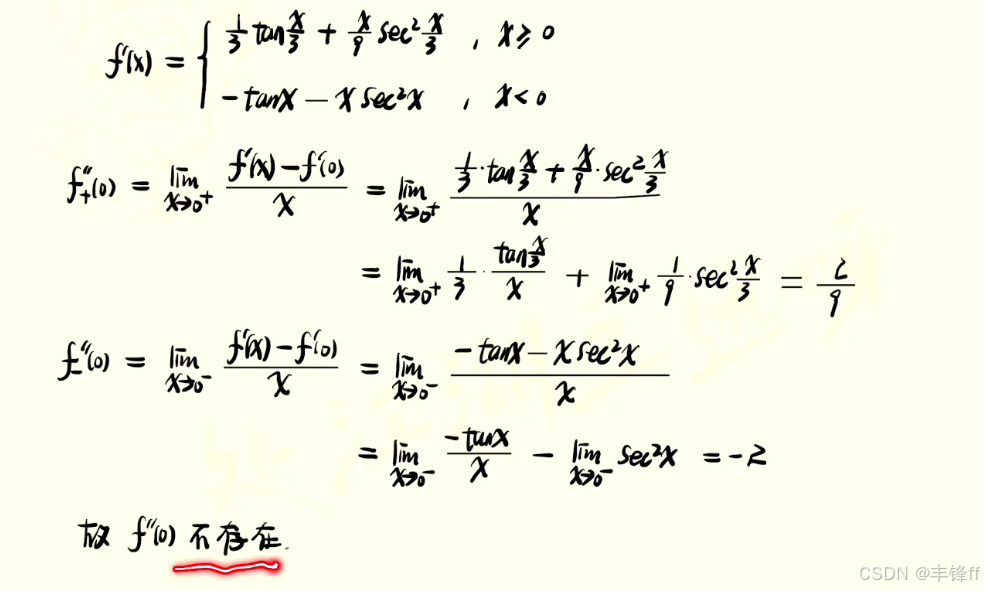 f'(x) = { 1/3 tan x/3 + x/9 sec² x/3 , x ≥ 0
-tanx - x sec²x , x < 0
f''₊(0) = lim x→0⁺ (f'(x) - f'(0))/x = lim x→0⁺ (1/3 · tan x/3 + x/9 · sec² x/3)/x
= lim x→0⁺ 1/3 · (tan x/3)/x + lim x→0⁺ 1/9 · sec² x/3 = 2/9
f''₋(0) = lim x→0⁻ (f'(x) - f'(0))/x = lim x→0⁻ (-tanx - x sec²x)/x
= lim x→0⁻ (-tanx)/x - lim x→0⁻ sec²x = -2
故 f''(0) 不存在.
CSDN @丰锋ff